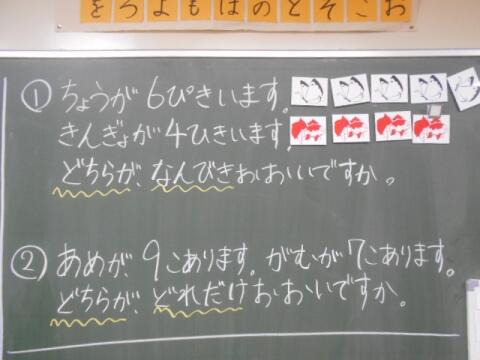 をろよもほのとそこお
① ちょうが 6ぴきいます。
きんぎょが 4ひきいます。
どちらが、なんびきおおいですか。
② あめが 9こあります。がむが 7こあります。
どちらが、どれだけおおいですか。